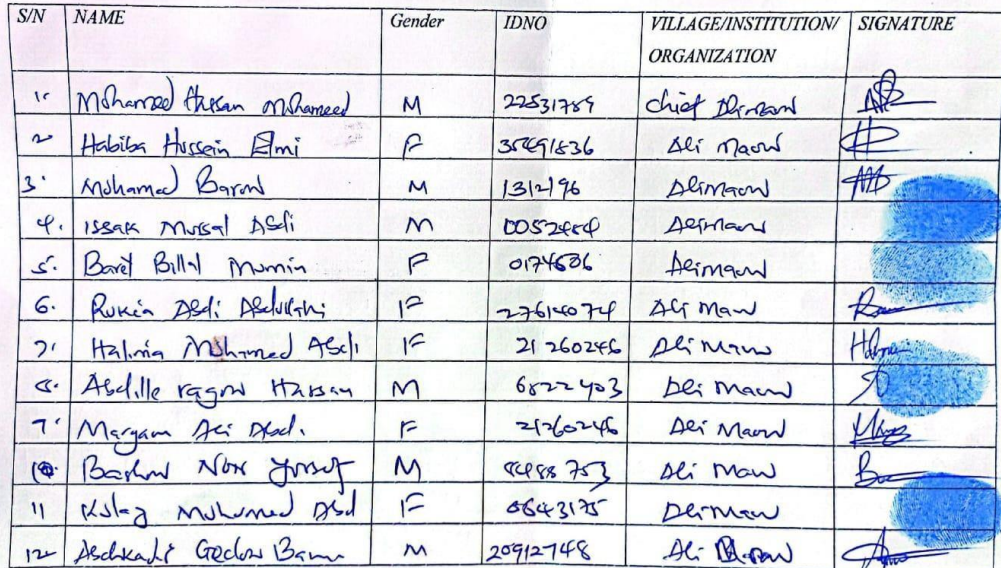 S/N NAME Gender IDNO VILLAGE/INSTITUTION/ORGANIZATION SIGNATURE
1. Mohamed Hassan Mohameed M 22531759 Chief
2 Habiba Hussein Elmi F 35491836 Ali Maow
3. Mohamed Barow M 1312196 Alimaow
4. Issak Mursal Abdi M 0052484 Alimaow
5. Billal Mumin F Alimaow
6. Rukia Abdi Abdullahi F 27614074 Ali Maow
7. Halima Mohamed Abdi F 21260246 Ali Maow
8. Abdille ragow Hassan M 6822403 Ali Maow
9. Maryam Ali Abdi. F 21260246 Ali Maow
10. Nor Yussuf M 8488753 Ali Maow
11 Mohamed Abd F Alimaow
12 M 20912748 Ali